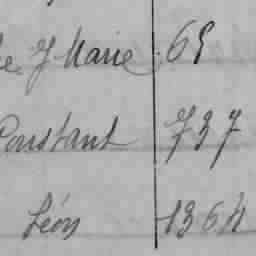 J Marie 65
Constant 737
Léon 1364